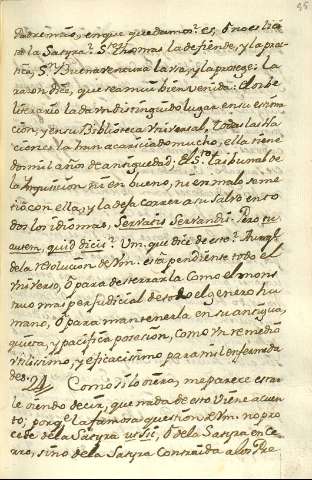 95
Padre mio, en que quedamos? es, ò no es lici
ta la Satyra? Sto. Thomas la defiende, y la prac
tica, Sn. Buenaventura la usa, y la protege: la
razon dice, que sea mui bien venida: el orbe
literario la da un distinguido lugar en su estima
cion, y en su Biblioteca Universal. Todas las Na
ciones la han acariciado mucho, ella tiene
dos mil años de antiguedad; el Sto. tribunal de
la Inquisicion ni en bueno, ni en malo se me
tiò con ella, y la dexa correr a su salvo en to
dos los idiomas, Servatis Servandis. Pero tu
autem, quid dicis? Vm. que dice de esto?
de la resolucion de Vm. està pendiente todo el
Universo, ò para desterrarla como el mons
truo mas perjudicial de todo el genero hu
mano, ò para mantenerla en su antigua,
quieta, y pacifica posesion, como un remedio
utilissimo, y eficacissimo para mil enfermeda
des. 24 Como si lo viera, me parece estar
le oiendo decir, que nada de esto viene a cuen
to; porq. la famosa question de Vm. no pro
cede de la Satyra ut sic, ò de la Satyra en ce
rro, sino de la Satyra contraida a los Pre